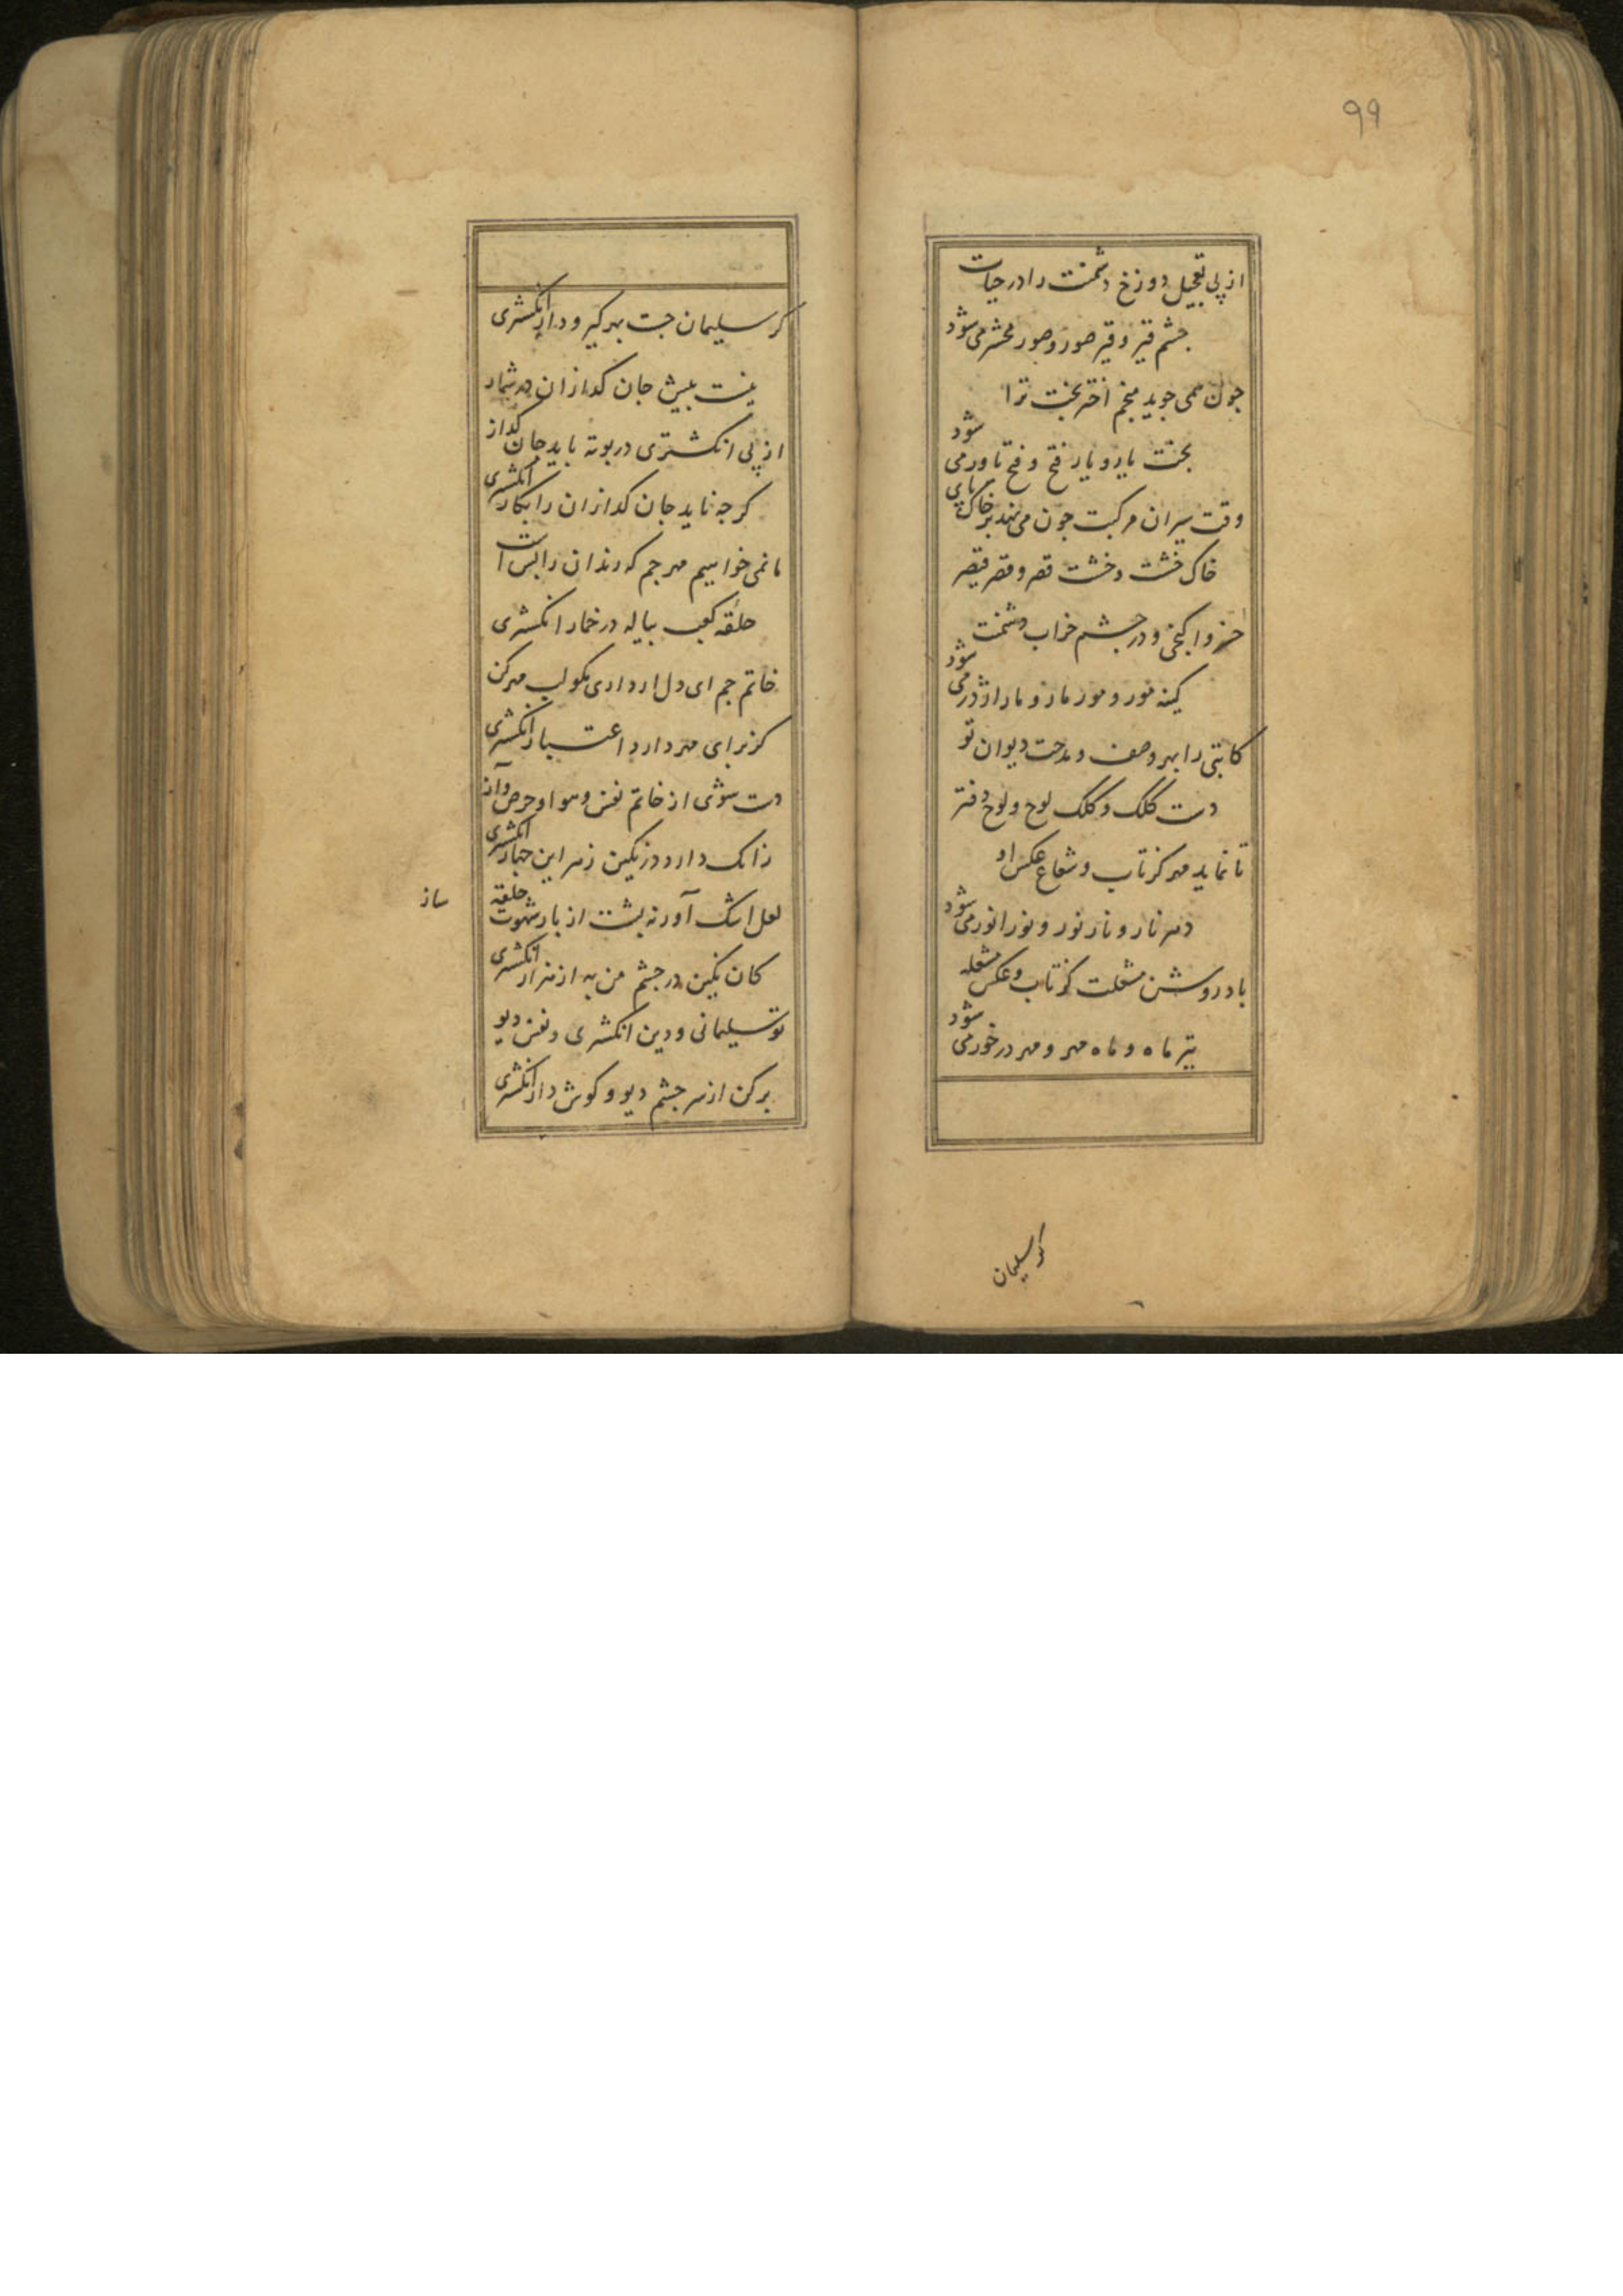 ۹۹
از پی تعجیل دوزخ دشمنت را در حیات
جشم قیر و قیر صور و صور محشر می شود
جون همی جوید منجم اختر بخت ترا
بخت یار و یار فتح و فتح یاور می شود
وقت سیران مرکبت جون می نهد بر خاک پای
خاک خشت و خشت قصر و قصر قیصر
و در جشم خراب دشمنت
کینه مور و مور مار و مار اژدر می شود
کاتبی را بهر وصف و مدحت دیوان تو
دست کلک و کلک لوح و لوح دفتر
تا نماید مهر کز تاب و شعاع عکس او
دهر نار و نار نور و نور انور می شود
باد روشن مشعلت کز تاب و عکس مشعله
تیر ماه و ماه مهر و مهر در خور می شود
کر سلیمان
کر سلیمان جست بهر کیر و دار انکشتری
نیست بیش جان کدازان در شمار
از پی انکشتری در بوته باید جان کداز
کر جه ناید جان کدازان را بکار انکشتری
ما نمی خواهیم مهر جم که رندان را بس است
حلقه کعب پیاله در خمار انکشتری
خاتم جم ای دل ار داری نکو لب مهر کن
کز برای مهر دارد اعتبار انکشتری
دست شوی از خاتم نفس و هوا و حرص و آز
زانک دارد در نکین زهر این جهار انکشتری
لعل اشک آور نه پشت از بار شهوت حلقه ساز
کان نکین در جشم من به از هزار انکشتری
تو سلیمانی و دین انکشتری و نفس دیو
بر کن از سر جشم دیو و کوش دار انکشتری